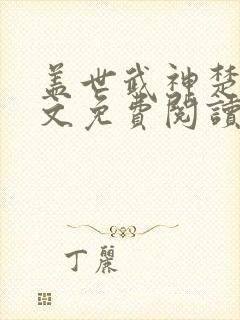 盖世武神楚
文免費閱讀
丁麗